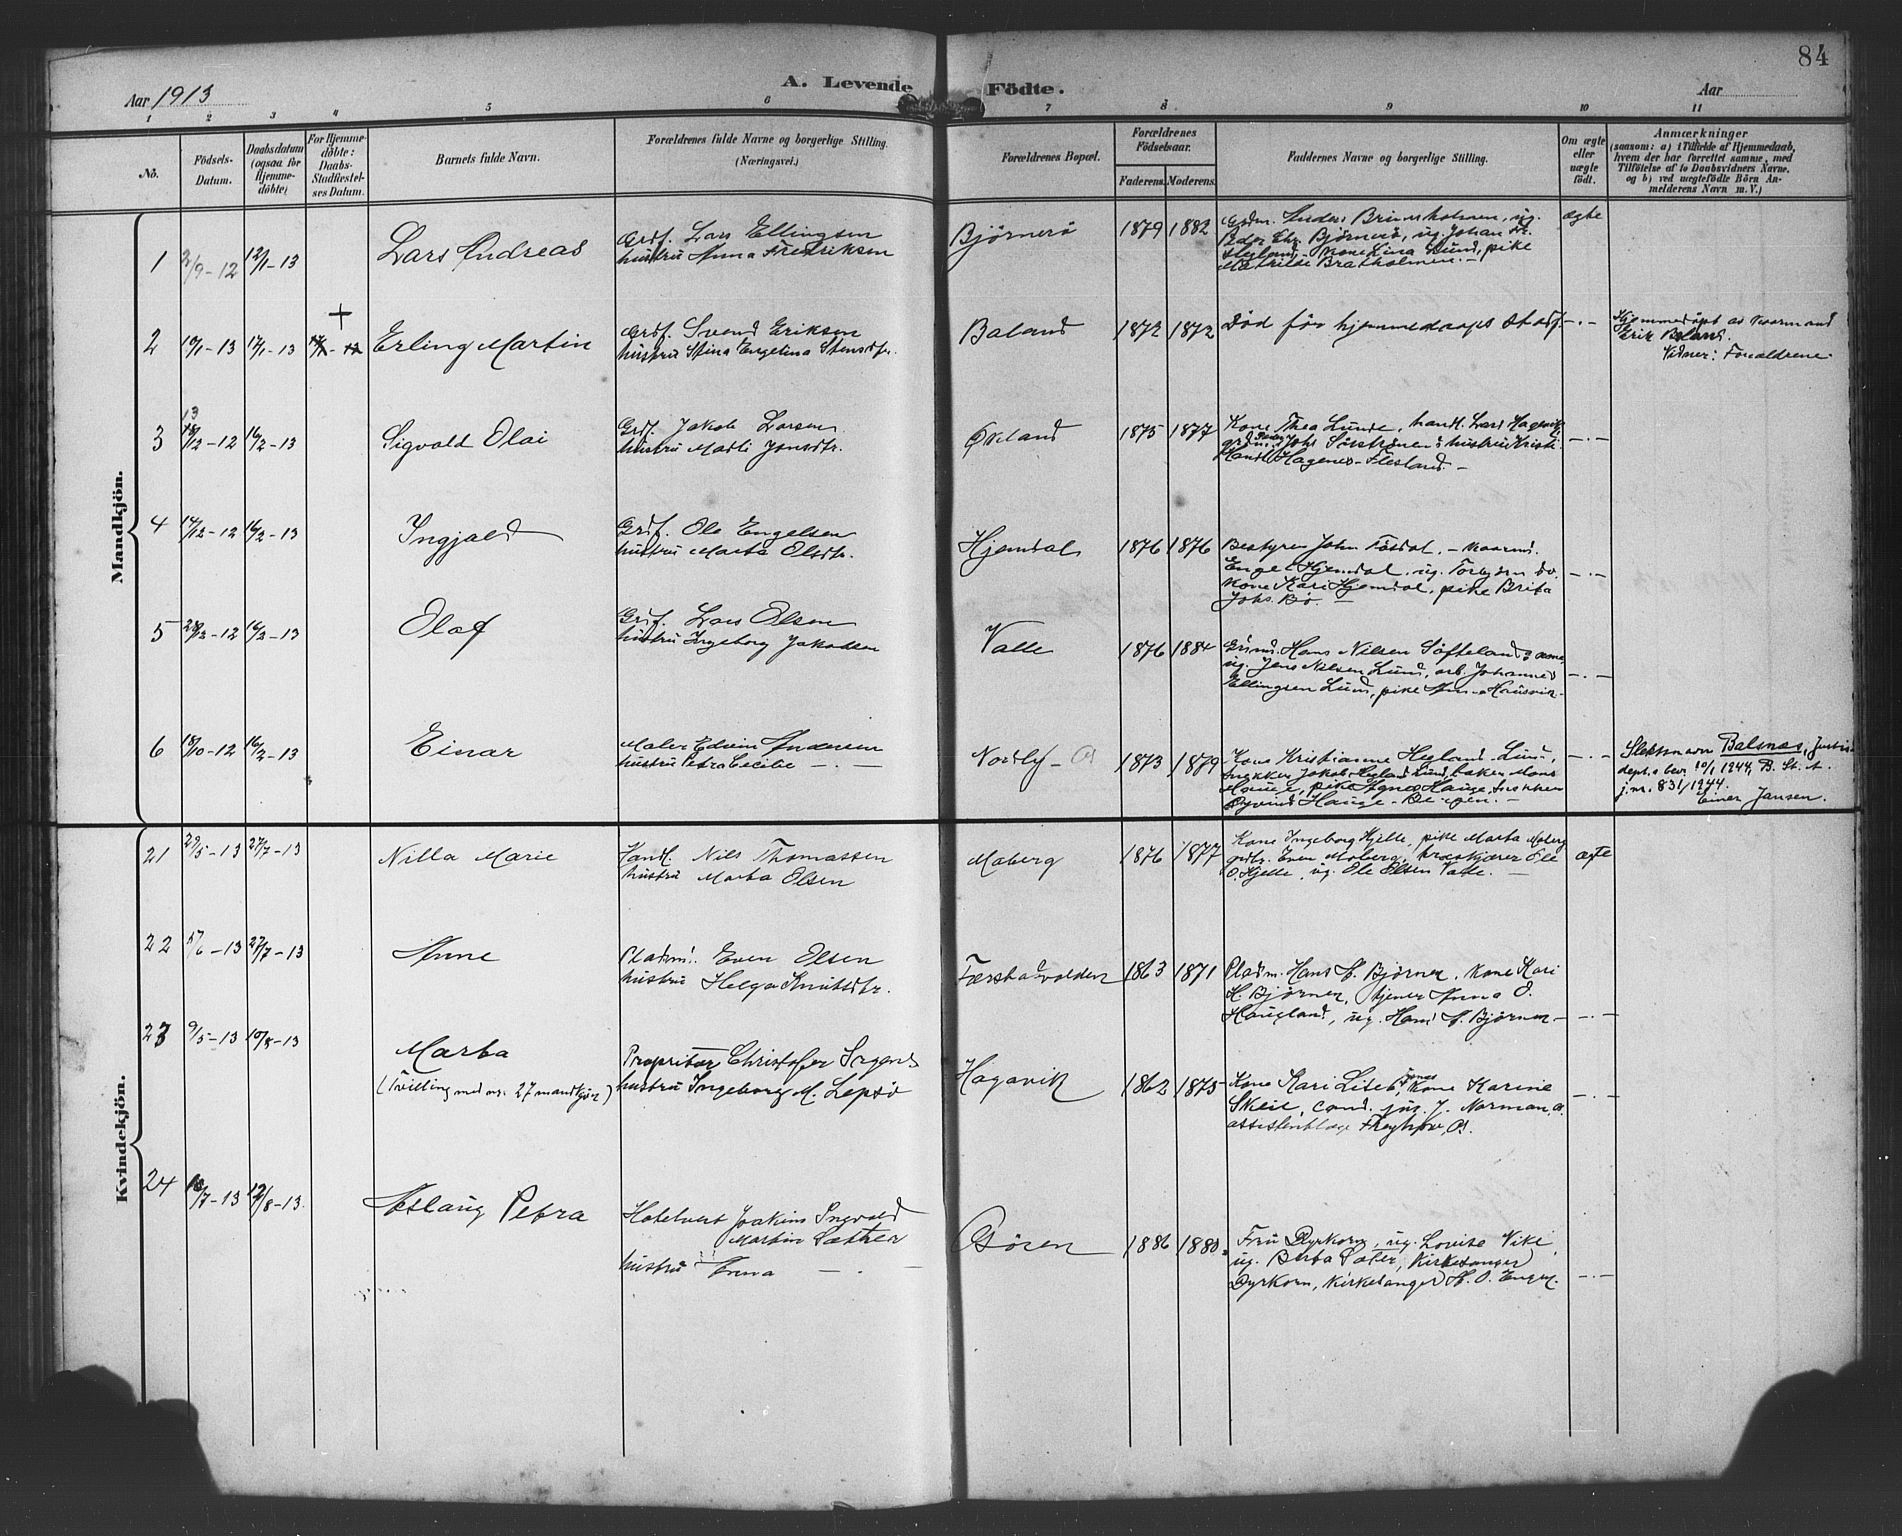 84
Aar 1913
A. Levende Födte.
Aar
1 2 3 4 5 6 7 8 9 10 11
No.
Födsels-Datum.
Daabsdatum (ogsaa for Hjemme-döbte)
For Hjemme-döbte: Daabs-Stadfæstel-ses Datum.
Barnets fulde Navn.
Forældrenes fulde Navne og borgerlige Stilling.
(Næringsvei.)
Forældrenes Bopæl.
Forældrenes Födselsaar.
Faderens. Moderens.
Faddernes Navne og borgerlige Stilling.
Om ægte eller uægte født.
Anmærkninger
(saasom: a) i Tilfælde af Hjemmedaab,
hvem der har forrettet samme, med
Tilföielse af to Daabsvidners Navne,
og b) ved uægtefödte Börn An-
melderens Navn m. V.)
Mandkjön.
1 2/9-12 12/1-13 Lars Andreas
Grdf. Lars Ellingsen
hustru Anna Fredriksen
Björnerö 1879 1882
Peder Chr. Björnerö, ug. Johan
Kone Lina Lund, pike
Mathilde Bratholmen.-
ægte
2 10/1-13 17/1-13 + Erling Martin
Grdf. Svend Eriksen
hustru Stina Engelina
Baland 1872 1872
Död før hjemmedaaps stadf.
-.-
Hjemmedøpt av Kaarmand
Erik Baland.
Vidner: Forældrene.
3 13/12-12 16/2-13 Sigvald Olai
Grdf. Jakob Larsen
hustru Marti Jonsdtr.
Økland 1875 1877
Kone Thea Lunde, handl. Lars
hustru Kristi
Handl. Hagenes-Flesland.-
-.-
4 14/12-12 16/2-13 Ingjald
Grdf. Ole Engelsen
hustru Marta Olsdtr.
Hjemdal 1876 1876
Bestyrer John Tøsdal, - Kaarmd.
Engel Hjemdal, ug. Torbjørn do,
Kone Kari Hjemdal, pike Brita
Johs. Bø. -
-.-
5 28/12-12 16/2-13 Olaf
Grdf. Lars Olsen
hustru Ingeborg Jakobsen
Valle 1876 1884
Grdmd. Hans Nilsen Søfteland
ug. Jens Nilsen Lund, arb. Johannes
Ellingsen Lund, pike
-.-
6 18/10-12 16/2-13 Einar
Maler Edvin Andersen
hustru Petra Cecilie - . -
Nordly - Os 1873 1879
Kone Kristianne Hegland-Lund,
snekker Jakob Hegland Lund, baker Mons
Hauge, pike Agnes Hauge, snekker
Øyvind Hauge - Bergen. -
-.-
Slektsnavn Balsnes, Justis-
dept.s bev. 10/1 1944, B. St. A.
j.nr. 831/1944.
Einer Jansen.
Kvindekjön.
21 29/5-13 27/7-13 Nilla Marie
Handl. Nils Thomassen
hustru Marta Olsen
Moberg 1876 1877
Kone Ingeborg Hjelle, pike Marta Moberg
grdbr. Even Moberg, Ole
O. Hjelle, ug. Ole Olsen Valle. -
ægte
22 /6-13 27/7-13 Anne
Pladsmd. Even Olsen
hustru Helga Knutsdtr.
1863 1871
Pladsm. Hans A. Björnen, kone Kari
H. Björnen, tjener Anna O.
Haugland, ug. Hans A. Björnen -
-.-
23 9/5-13 10/8-13 Marta
(Tvilling med nr. 27 mandkjøn)
Proprietær Christofer Irgens
hustru Ingeborg M. Lepsö
Hagavik 1862 1875
Kone Kari Litebø, kone Karine
Skeie, cand. jur. J. Norman, o.
assistentlæge Os.
-.-
24 18/7-13 17/8-13 Aslaug Petra
Hotelvert Joakim Ingvald
Martin Sæther
hustru Anna - . -
Osören 1886 1880
Fru Dyrkorn, ug. Lovise Vike,
ug. Berta Sæter, kirkesanger
Dyrkorn, kirkesanger A. O. Engen.
-.-